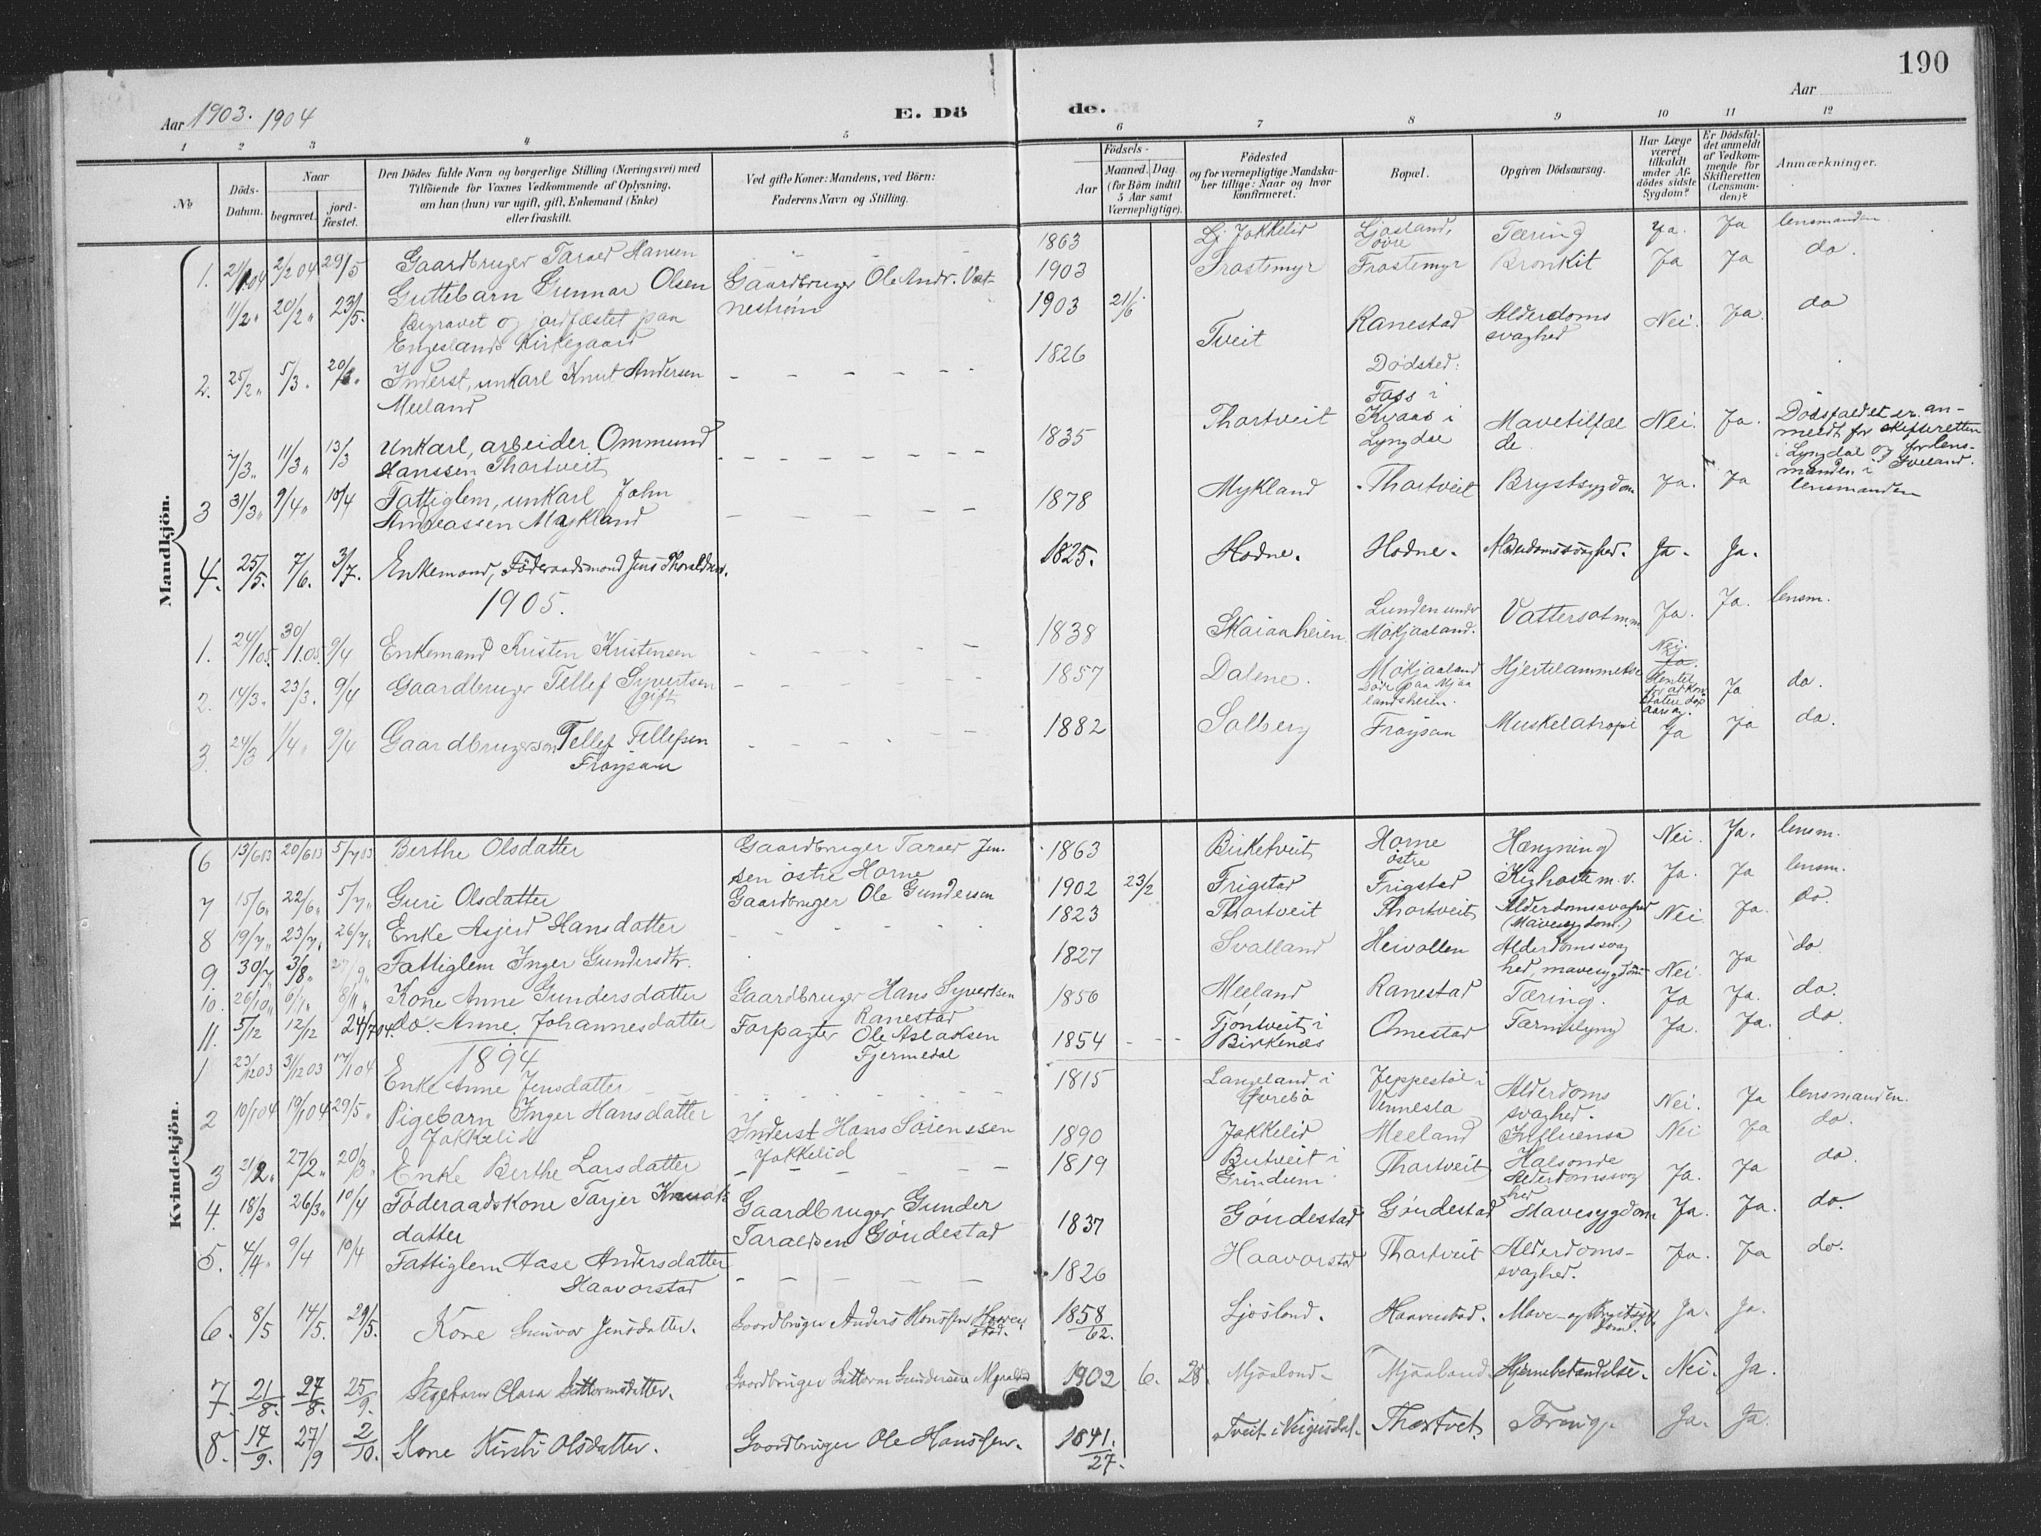 190
Aar 1903. 1904
E. Dö
de.
Aar
1 2 3 4 5 6 7 8 9 10 11 12
No
Döds-Datum.
Naar
begravet.
jord-fæstet.
Den Dödes fulde Navn og borgerlige Stilling (Næringsvei) med
Tilföiende for Voxnes Vedkommende af Oplysning,
om han (hun) var ugift, gift, Enkemand (Enke)
eller fraskilt.
Ved gifte Koner: Mandens, ved Börn:
Faderens Navn og Stilling.
Födsels-
Aar
Maaned. Dag.
(for Börn indtil
5 Aar samt
Værnepligtige).
Födested
og for værnepligtige Mandska-
ber tillige: Naar og hvor
konfirmeret.
Bopæl.
Opgiven Dödsaarsag.
Har Læge
været
tilkaldt
under Af-
dödes sidste
Sygdom?
Er Dödsfal-
det anmeldt
af Vedkom-
mende for
Skifteretten
(Lensman-
den)?
Anmærkninger.
Mandkjön.
1. 2/2 04 29/5 Gaardbruger Tarald Hansen 1863 Jokkelid Ljosland, Tæring Ja. Ja lensmanden
øvre
11/2 " 20/2 " 23/5. Guttebarn Gunnar Olsen Gaardbruger Ole Andr. Vat- 1903 Frostemyr Frostemyr Bronkit Ja Ja do.
Begravet og jordfæstet paa nestrøm 1903 21/6
Engeslands Kirkegaard
2. 25/2 " 5/3. 20/3. Inderst, unkarl Knut Andersen 1826 Tveit Ranestad Alderdoms Nei. Ja. do
Meeland svaghed
Dödsted:
7/3 " 11/3 " 13/3 Unkarl, arbeider Ommund 1835 Thortveit Foss i Mavetilfæl Nei. Ja. Dödsfaldet er an-
Hanssen Thortveit Kvaas i de. meldt for skifteretten
Lyngdal i Lyngdal og for lens-
manden i Iveland.
3 31/3 " 9/4 " 10/4 Fattiglem, unkarl John 1878 Mykland Thortveit Brystsygdom Ja. Ja lensmanden
Andreassen Mykland
4. 25/5. 7/6. 3/7. Enkemand, Föderaadsmand Jens Thoraldsen. 1825. Hodne. Hodne. Alderdomssvaghed. Ja. Ja.
1905.
1. 24/1 05. 30/1 05. 9/4 Enkemand Kristen Kristensen 1838 Skaiaaheien Lunden under Vattersot m.m Ja. Ja. lensm.
Mökjaaland.
2. 14/3. 23/3. 9/4 Gaardbruger Tellef Syvertsen 1857 Dalene. Mökjaaland Hjertelammelse Nei. Ja do.
gift
Döde paa Mjaa
landsheien.
3. 24/3 1/4 " 9/4 Gaardbrugersøn Tellef Tellefsen 1882 Solberg Frøysaa Muskelatropi Ja Ja do.
Frøysaa
Kvindekjön.
6 13/6 03 20/6 03 5/7 03 Berthe Olsdatter Gaardbruger Tarald Jen- 1863 Birketveit Horne Hængning Nei. Ja. lensm.
sen östre Horne östre
7 15/6 " 22/6 " 5/7 " Guri Olsdatter Gaardbruger Ole Gundersen 1902 23/2 Frigstad Frigstad Kighoste m.v. Ja. Ja lensm.
8 19/7 " 23/7 " 26/7 " Enke Asjerd Hansdatter 1823 Thortveit Thortveit Alderdomssvaghed Nei Ja. do.
(Mavesygdom.)
9. 30/7 " 3/8 " 27/9 " Fattiglem Inger Gundersdtr. 1827 Svalland Heivollen Alderdomssvag Nei Ja do
hed, mavesygdom
10. 26/10 " 8/11 " Kone Anne Gundersdatter Gaardbruger Hans Syvertsen 1856 Meeland Ranestad Tæring. Ja Ja. do.
Ranestad
11. 5/12 12/12 24/7 04. do. Anne Johannesdatter Forpagter Ole Aslaksen 1854 Tjöntveit i Omestad Tarmslyng Ja. Ja. do.
Fjermedal Birkenæs
1894
1 23/12 03 31/12 03 17/1 04 Enke Anne Jensdatter 1815 Langeland i Jeppestöl i Alderdoms Nei. Ja lensmanden.
Øvrebö Vennesla svaghed.
2 10/1 04 19/1 04 29/5 " Pigebarn Inger Hansdatter Inderst Hans Sörenssen 1890 Jokkelid Meeland Influensa Nei Ja do.
Jokkelid Jokkelid
3 2/2 " 27/2 " 20/3 " Enke Berthe Larsdatter 1819 Butveit i Thortveit Halsonde Ja. Ja do.
Grindum Alderdomssvag
hed
4. 18/3 26/3 " 10/4 Föderaadskone Tarjer Knuds Gaardbruger Gunder 1837 Göndestad Göndestad Mavesygdom Ja. Ja. do.
datter Taraldsen Göndestad
5. 4/4 " 9/4 10/4 Fattiglem Aase Andersdatter 1826 Haavorstad Thortveit Alderdoms- Ja. Ja do.
Haavorstad svaghed.
6. 8/5 14/5. 29/5. Kone Gunvor Jensdatter. Gaardbruger Anders Hanssen Haaver 1858 Ljosland. Haaverstad. Mave- og Brystsyg Ja. Ja.
stad. 62. dom.
7. 21/8. 27/8. 25/9. Pigebarn Clara Guttormsdatter. Gaardbruger Guttorm Gundersen Mjaaland 1902 6. 28. Mjaaland. Mjaaland. Hjernebetændelse. Nei. Ja.
8. 14/9. 27/9 2/10. Kone Kirsti Olsdatter. Gaardbruger Ole Hanssen. 1841. Tveit i Vegusdal. Thortveit. Tæring. Ja. Ja.
27.